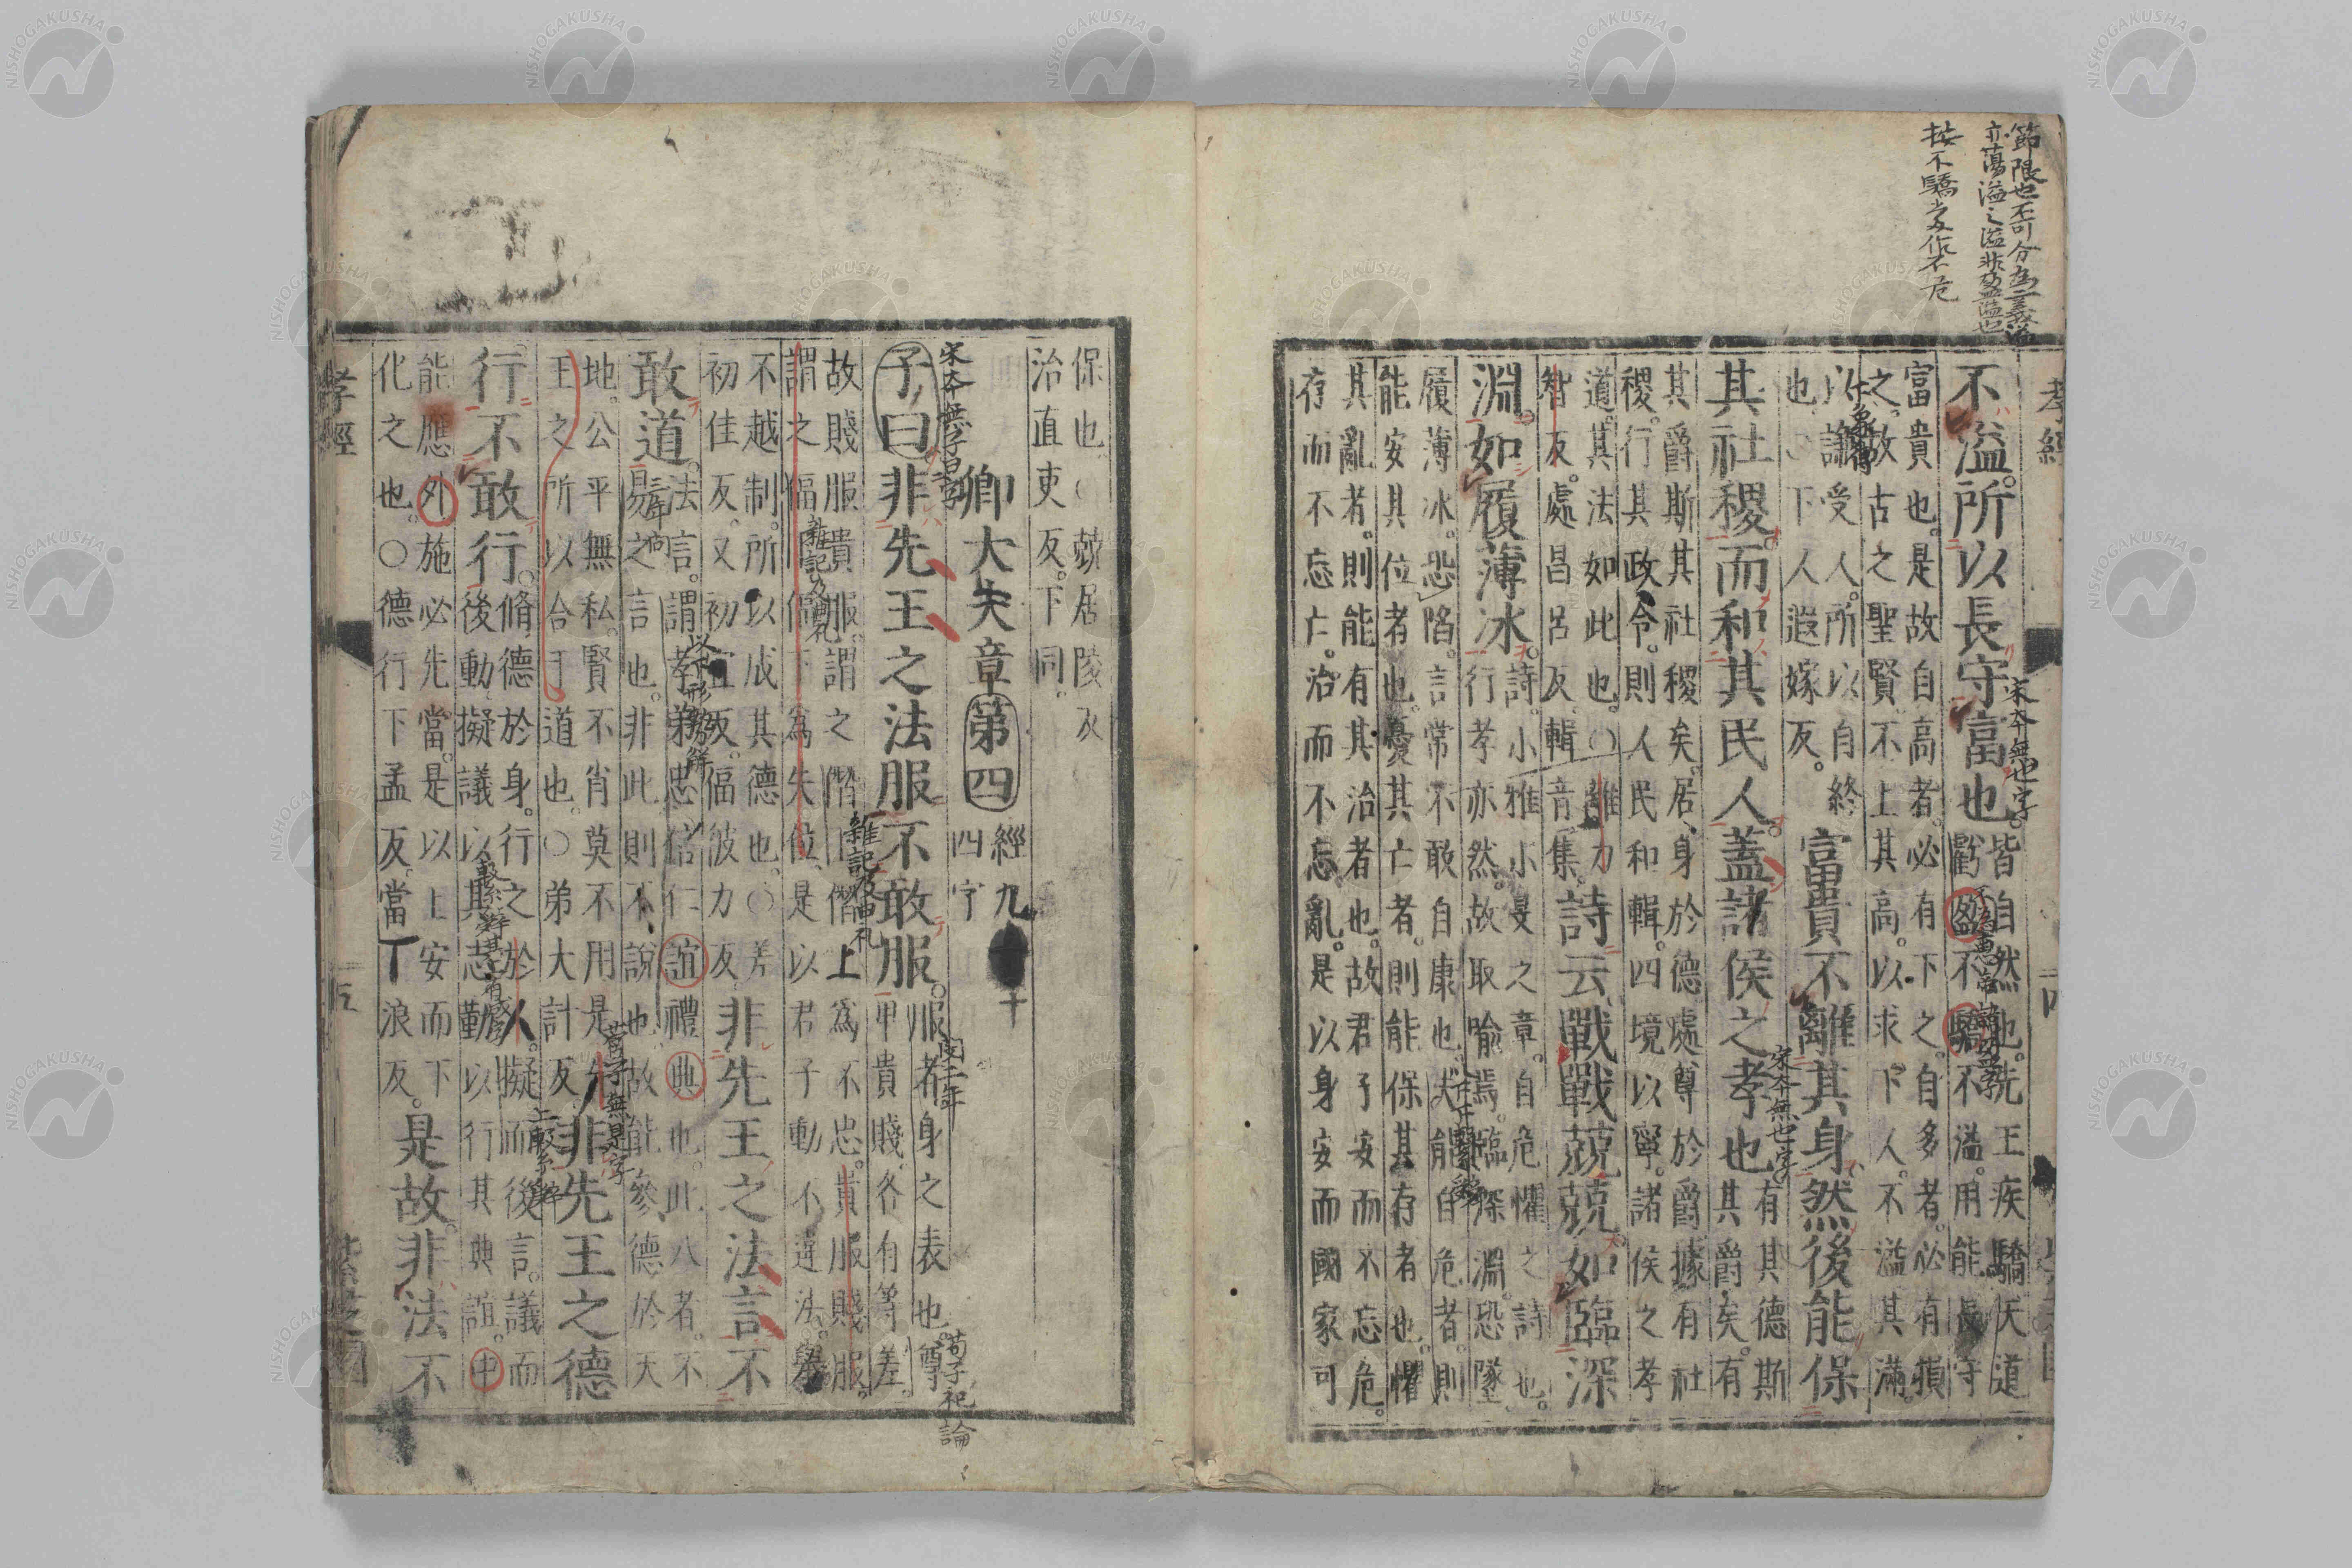 節限也不可分為二義溢
亦蕩溢之溢非盈溢也
按不驕当作不危
孝經
不溢。所以長守富也。
宋本無也字
皆自然也。先王疾驕天道
虧盈不驕不溢。用能長守
富貴也。是故自高者。必有下之。自多者。必有損
之。故古之聖賢。不上其高。以求下人。不溢其滿。
以謙受人。所以自終
也。○下人遐嫁反。
富貴不離其身。然後能保
其社稷。而和其民人。蓋諸侯之孝也
宋本無也字
有其德斯
其爵矣。有
其爵斯其社稷矣。居身於德處尊於爵據有社
稷。行其政令。則人民和輯。四境以寧。諸侯之孝
道。其法如此也。○離力
智反。處昌呂反。輯音集。
詩云。戰戰兢兢。如臨深
淵。如履薄冰。
詩。小雅小旻之章。自危懼之詩也。
行孝亦然。故取喻焉。臨深淵。恐墜。
履薄冰。恐陷。言常不敢自康也。夫能自危者。則
能安其位者也。憂其亡者。則能保其存者也。懼
其亂者。則能有其治者也。故君子安而不忘危。
存而不忘亡。治而不忘亂。是以身安而國家可
保也○兢居陵反
治直吏反。下同。
卿大夫章第四
經九十
四字
宋本無子曰字
子曰。非先王之法服不敢服。
服者身之表也。尊
卑貴賤各有等差。
荀子礼論
故賤服貴服。謂之僭上僭上為不忠。貴服賤服。
謂之偪下偪下為失位。是以君子動不違法。舉
不越制。所以成其德也。○差
初佳反。又初宜反。偪彼力反。
非先王之法言不
敢道。
法言。謂孝弟忠信仁誼禮典也。此八者。不
易之言也。非此則不說也。故能參德於天
地。公平無私。賢不肖莫不用。是
王之所以合于道也。○弟大計反。
荀子無是字
非先王之德
行不敢行。
脩德於身。行之於人。擬而後言。議而
後動。擬議以其志動。以行其典誼。中
能應外施必先當。是以上安而下
化之也。○德行下孟反。當丁浪反。
是故非法不
孝經
五